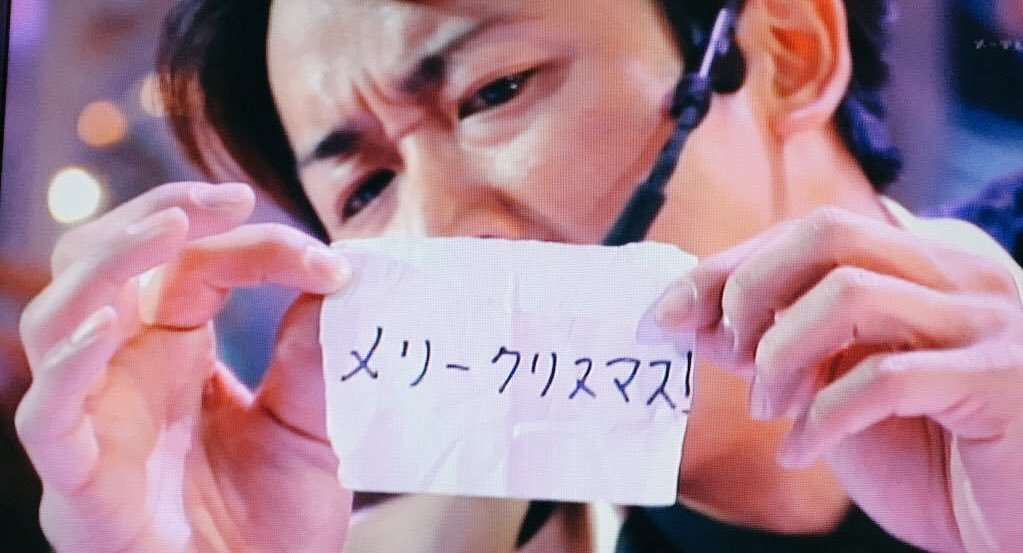 メリークリスマス!